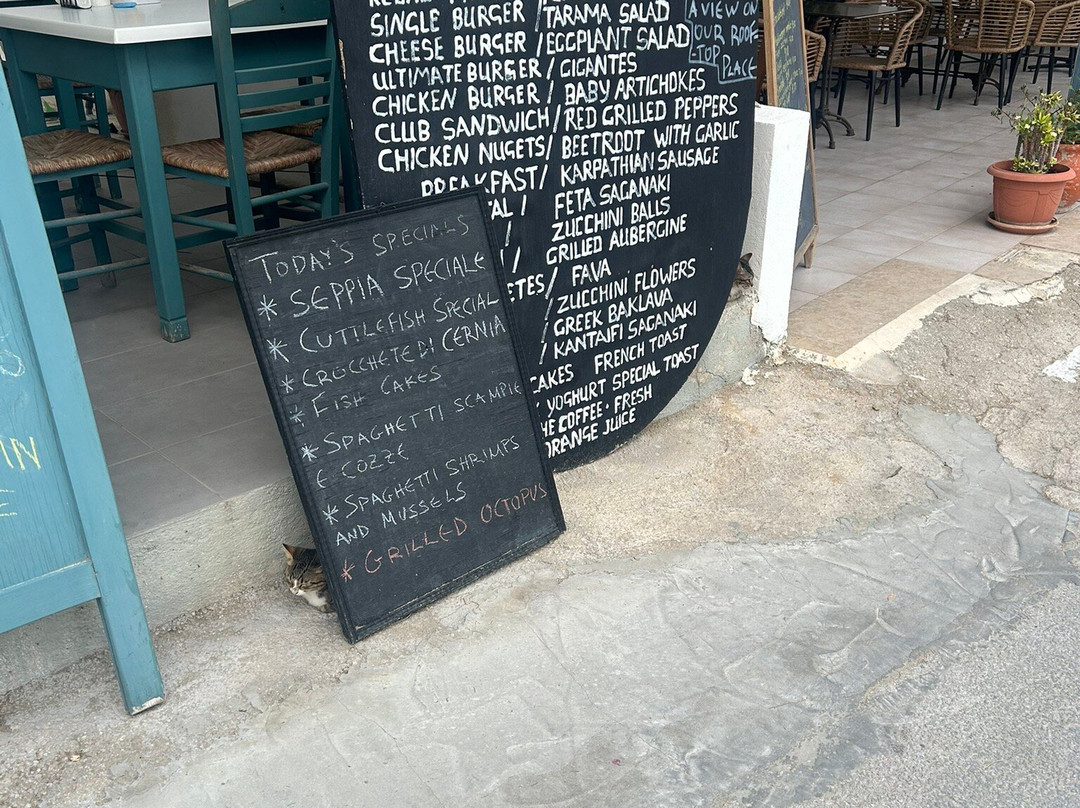 SINGLE BURGER / TARAMA SALAD
CHEESE BURGER / EGGPLANT SALAD
ULTIMATE BURGER / GIGANTES
CHICKEN BURGER / BABY ARTICHOKES
CLUB SANDWICH / RED GRILLED PEPPERS
CHICKEN NUGETS / BEETROOT WITH GARLIC
BREAKFAST / KARPATHIAN SAUSAGE
/ FETA SAGANAKI
ZUCCHINI BALLS
/ GRILLED AUBERGINE
/ FAVA
ZUCCHINI FLOWERS
/ GREEK BAKLAVA
/ KANTAIFI SAGANAKI
CAKES FRENCH TOAST
YOGHURT SPECIAL TOAST
COFFEE · FRESH
ORANGE JUICE
A VIEW ON
OUR ROOF
-TOP
PLACE
TODAY'S SPECIALS
* SEPPIA SPECIALE
* CUTTLEFISH SPECIAL
* CROCCHETE DI CERNIA
* FISH CAKES
* SPAGHETTI SCAMPIE
E COZZE
* SPAGHETTI SHRIMPS
AND MUSSELS
* GRILLED OCTOPUS